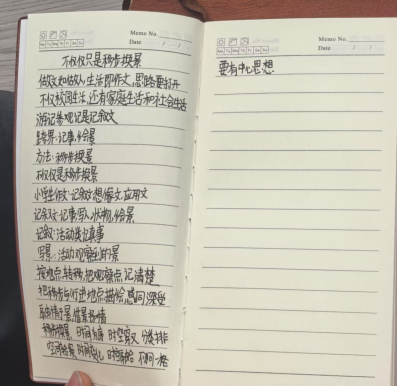 Memo No.
Mo Tu We Th Fr Sa Su
Date / /
不仅仅只是移步换景
做文如做人,生活即作文,思路要打开
不仅校园生活,还有家庭生活和社会生活
游记参观记是记叙文
跨界:记事,绘景
方法:移步换景
不仅仅是移步换景
小学生作文:记叙文想像文,应用文
记叙文:记事,写人,状物,绘景
记叙:活动类记真事
写景:活动,观察到的景
按地点转移,把观察点记清楚
把移步与行进地点描绘感同深受
移步换景 时间 时空 分类排
空间 时间 不同
Memo No.
Mo Tu We Th Fr Sa Su
Date / /
要有中心思想